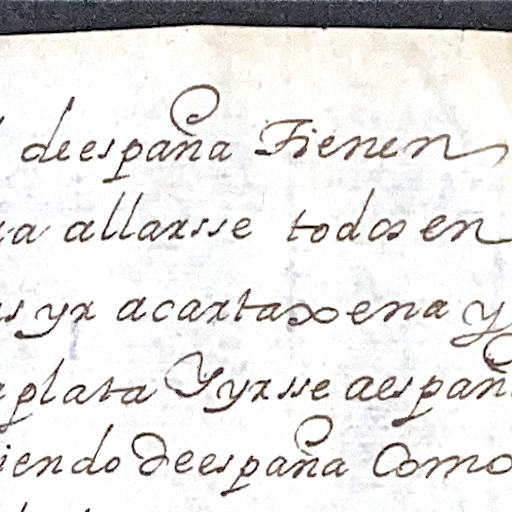 deespaña Tienen
a allarsse todos en
s yr acartaxena y
plata Y yrsse aespañ
iendo deespaña Como